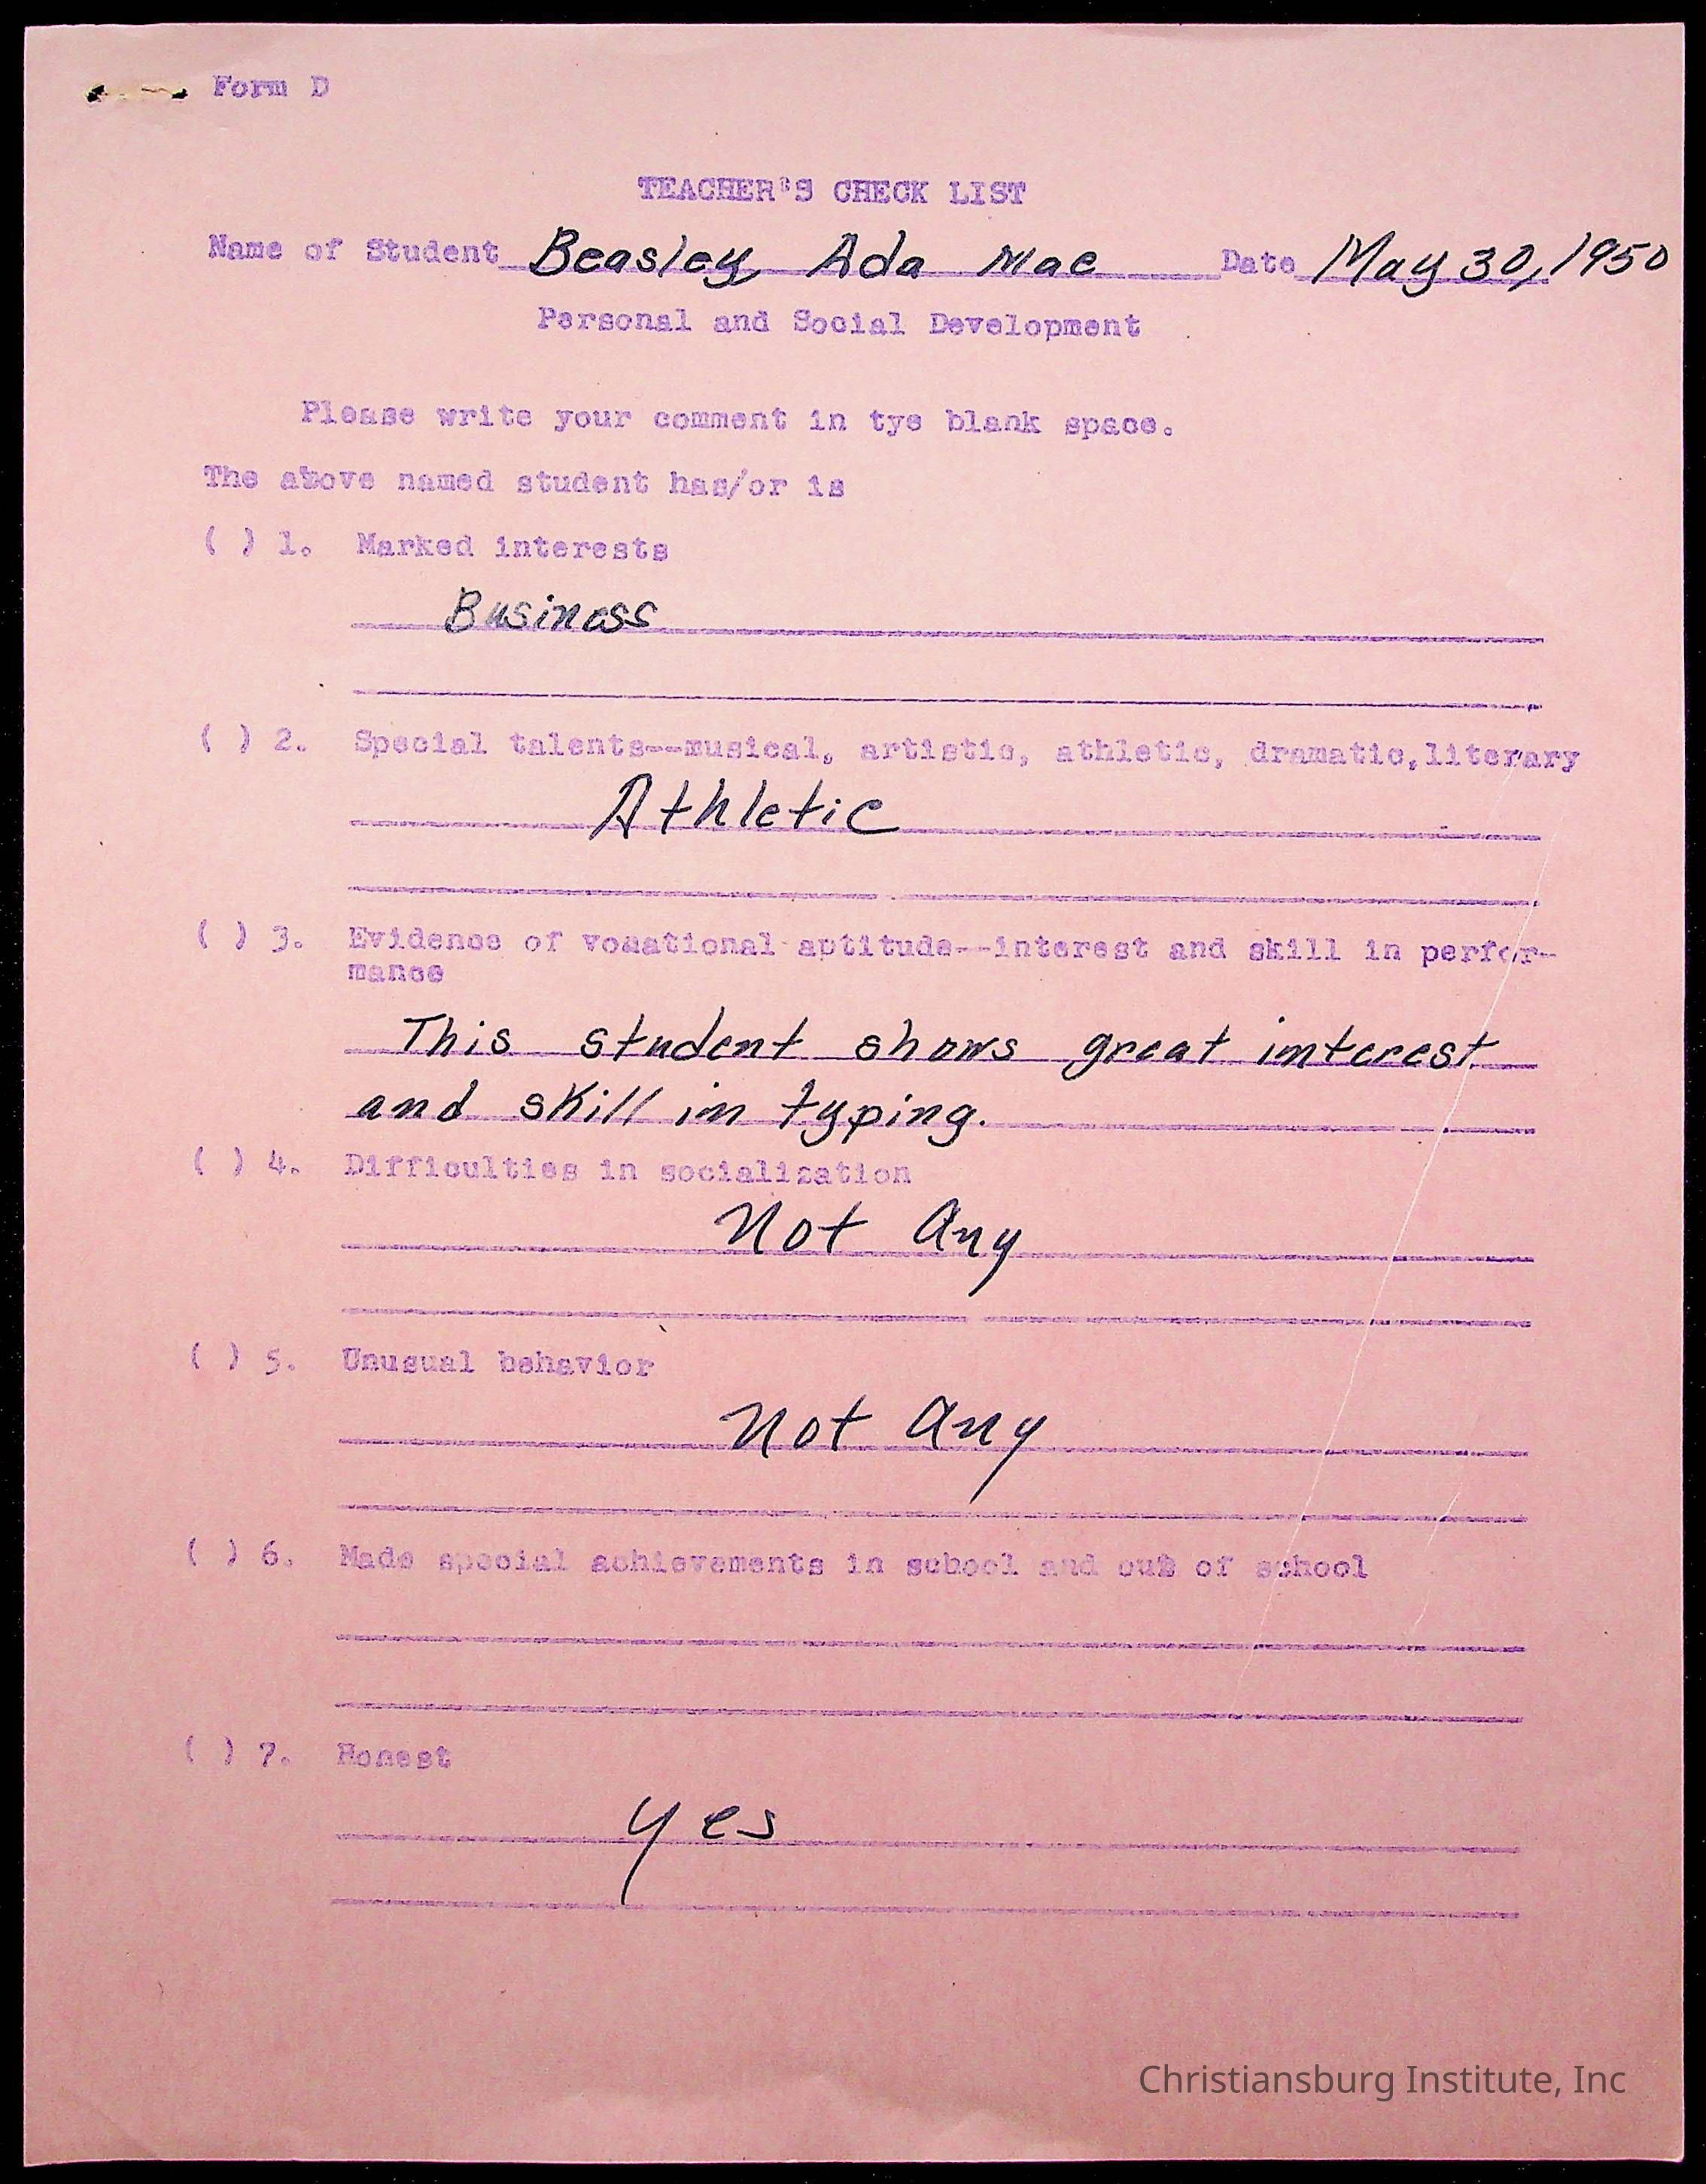 Form D
TEACHER'S CHECK LIST
Name of Student Beasley Ada Mae Date May 30, 1950
Personal and Social Development
Please write your comment in tye blank space.
The above named student has/or is
( ) 1. Marked interests
Business
( ) 2. Special talents--musical, artistic, athletic, dramatic, literary
Athletic
( ) 3. Evidence of vocational aptitude--interest and skill in perfor-
mance
This student shows great interest
and skill in typing.
( ) 4. Difficulties in socialization
Not Any
( ) 5. Unusual behavior
Not Any
( ) 6. Made special achievements in school and out of school
( ) 7. Honest
Yes
Christiansburg Institute, Inc